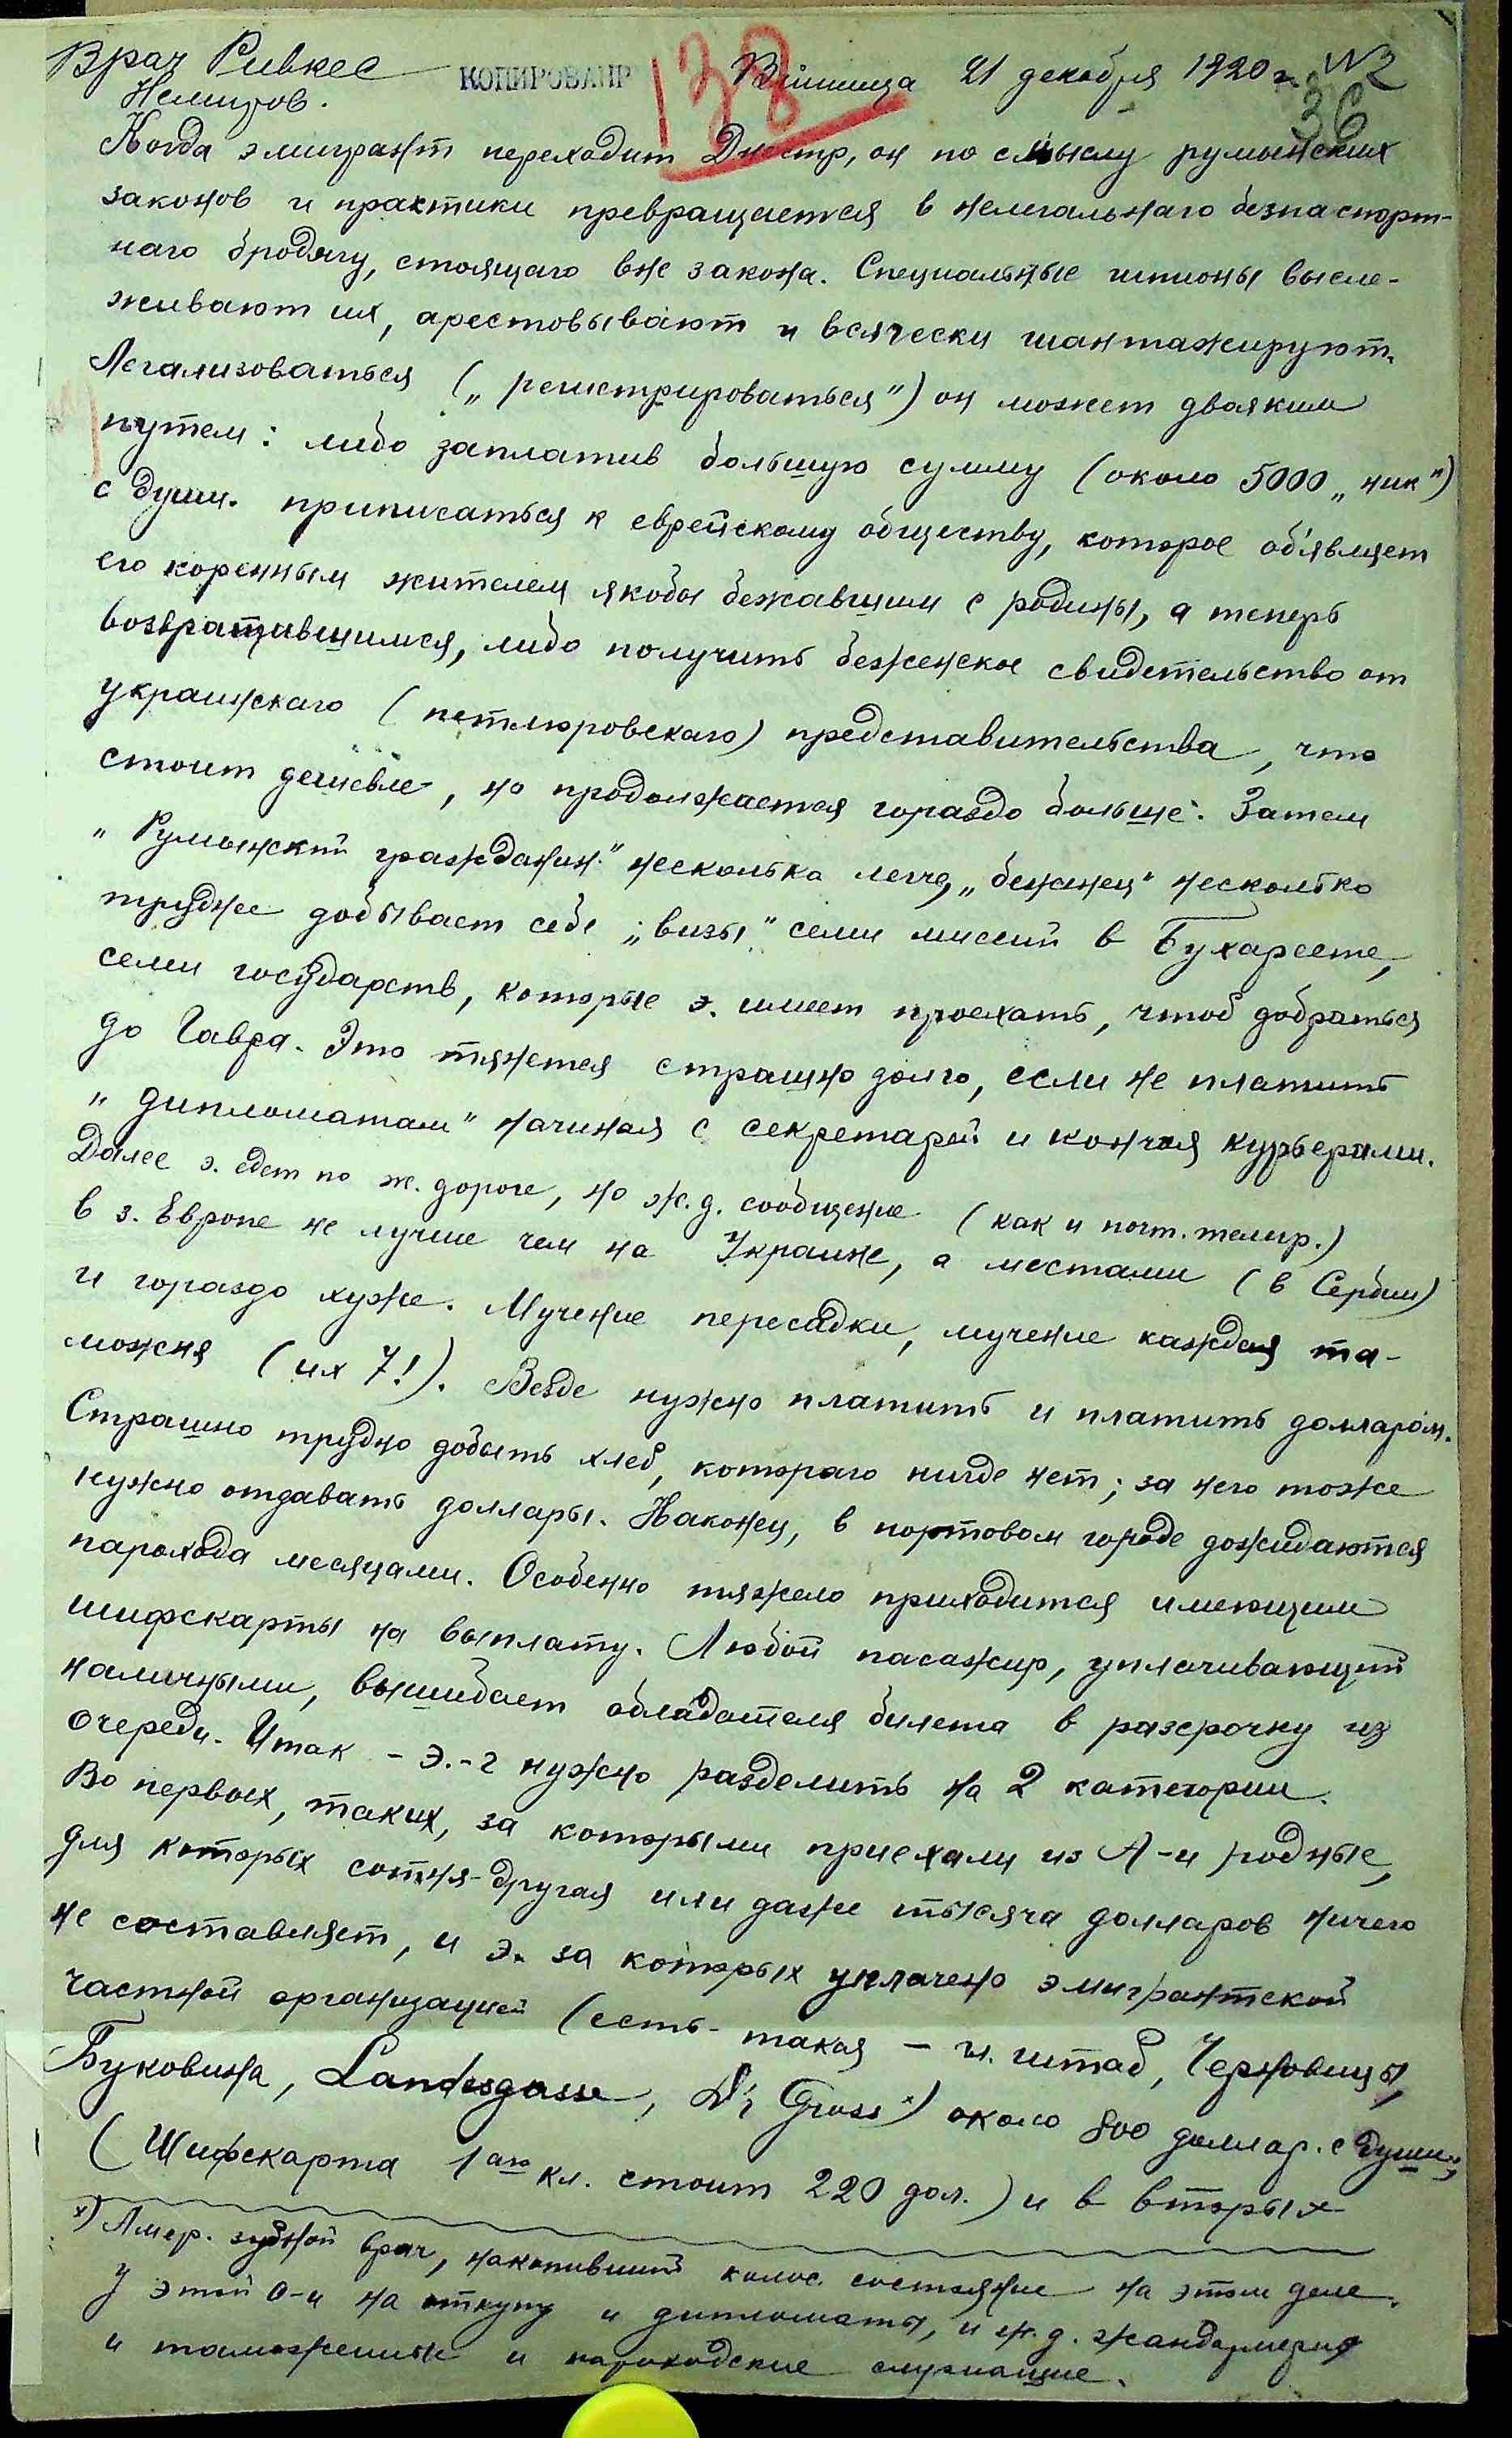 Врач Ривкес
Немиров.
КОПИРОВАНР
138
Винница 21 декабря 1920 г. N2
36
Когда эмигрант переходит Днестр, он по смыслу румынских
законов и практики превращается в нелегальнаго безпаспорт-
наго бродягу, стоящаго вне закона. Специальные шпионы высле-
живают их, арестовывают и всячески шантажируют.
Легализоваться („регистрироваться") он может двояким
путем: либо заплатив большую сумму (около 5000 „ник")
с души. приписаться к еврейскому обществу, которое об'являет
его коренным жителем якобы бежавшим с родины, а теперь
возвратавшимся, либо получить беженское свидетельство от
украинскаго (петлюровскаго) представительства, что
стоит дешевле, но продолжается гораздо больше. Затем
„Румынский гражданин" несколько легче, „беженец" несколько
труднее добывает себе „визы" семи миссий в Бухаресте,
семи государств, которые э. имеет проехать, чтоб добраться
до Гавра. Это тянется страшно долго, если не платить
„дипломатам" начиная с секретарей и кончая курьерами.
Далее э. едет по ж. дороге, но ж.д. сообщение (как и почт. телегр.)
в з. Европе не лучше чем на Украине, а местами (в Сербии)
и гораздо хуже. Мучение пересадки, мучение каждая та-
можня (их 7!). Везде нужно платить и платить долларом.
Страшно трудно добыть хлеб, котораго нигде нет; за него тоже
нужно отдавать доллары. Наконец, в портовом городе дожидаются
парохода месяцами. Особенно тяжело приходится имеющим
шифскарты на выплату. Любой пасажир, уплачивающий
наличными, вышибает обладателя билета в разсрочку из
очереди. Итак - э.-г нужно разделить на 2 категории.
Во первых, таких, за которыми приехали из А-и родные,
для которых сотня-другая или даже тысяча долларов ничего
не составляет, и э. за которых уплачено эмигрантской
частной организацией (есть такая - гл. штаб, Черновицы,
Буковина, Landesgasse, Dr Gross x) около 800 доллар. с души,
(Шифскарта 1аго кл. стоит 220 дол.) и в вторых
x) Амер. зубной врач, накопивший колос. состояние на этом деле.
У этой о-и на откупу и дипломаты, и ж.д. жандармерия
и таможенники и пароходские служащие.